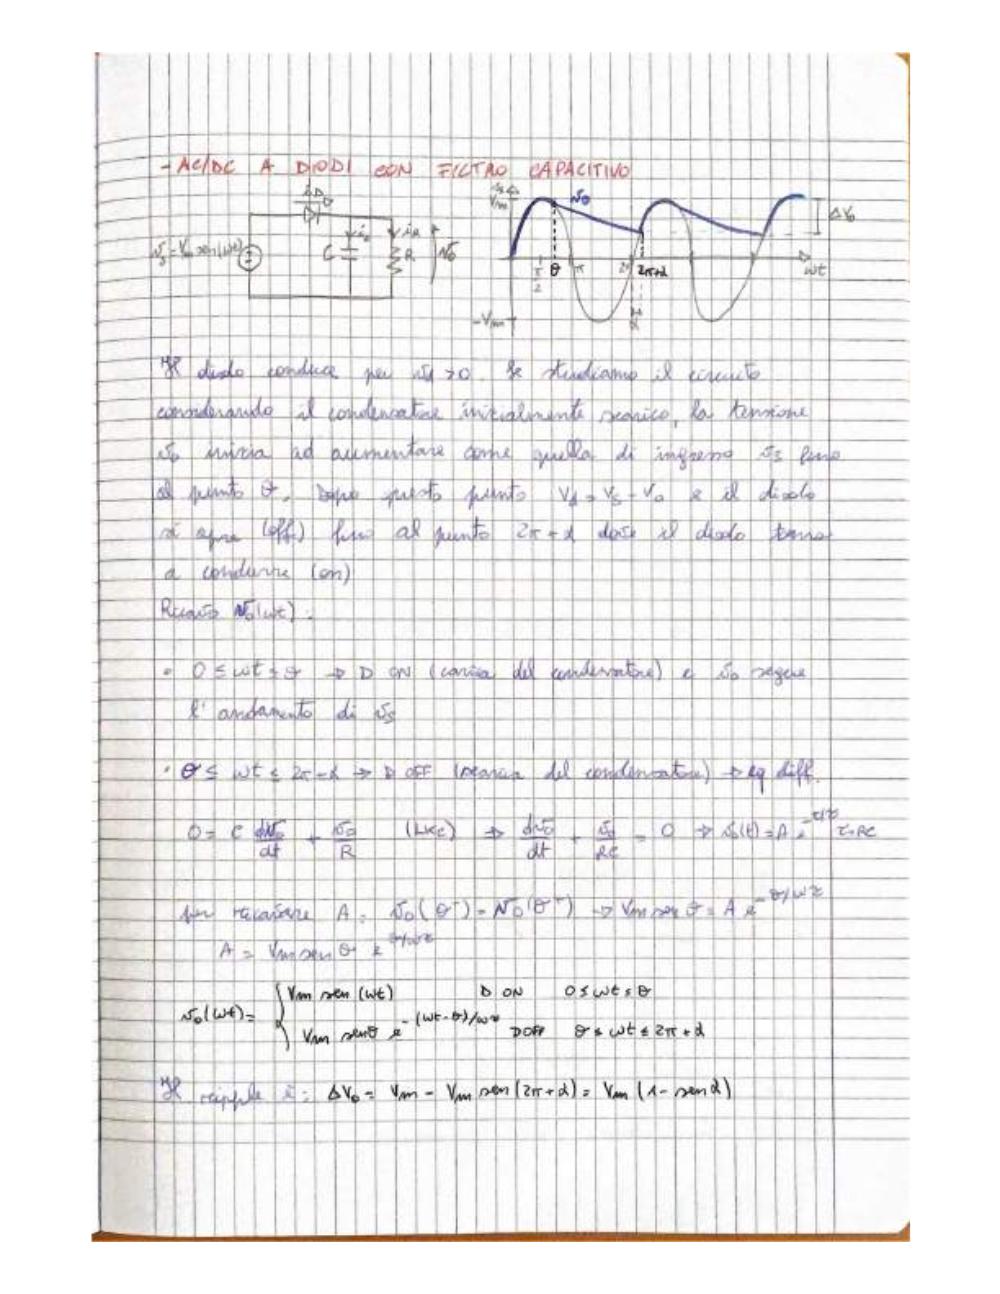 - AC/DC A DIODI CON FILTRO CAPACITIVO
iD
vs = Vm sen(ωt)
C
ic
iR
R
vo
Vm
vo
ΔVo
π/2
θ
π
2π
2π+α
ωt
-Vm
α
Il diodo conduce per vd > 0. Se studiamo il circuito
considerando il condensatore inizialmente scarico, la tensione
vo inizia ad aumentare come quella di ingresso vs fino
al punto θ. Dopo questo punto Vd = Vs - Vo e il diodo
si apre (off) fino al punto 2π + α dove il diodo torna
a condurre (on)
Ricavo vo(ωt):
• 0 ≤ ωt ≤ θ → D ON (carica del condensatore) e vo segue
l'andamento di vs
• θ ≤ ωt ≤ 2π-α → D OFF (scarica del condensatore) → eq diff.
0 = C dvo/dt + vo/R (LKC) ⇒ dvo/dt + vo/RC = 0 → vo(t) = A e^-t/τ τ=RC
per ricavare A: vo(θ⁻) = vo(θ⁺) → Vm sen θ = A e^-θ/ωτ
A = Vm sen θ e^θ/ωτ
vo(ωt) = { Vm sen (ωt) D ON 0 ≤ ωt ≤ θ
Vm senθ e^-(ωt-θ)/ωτ D OFF θ ≤ ωt ≤ 2π + α
Il ripple è: ΔVo = Vm - Vm sen(2π+α) = Vm (1 - senα)